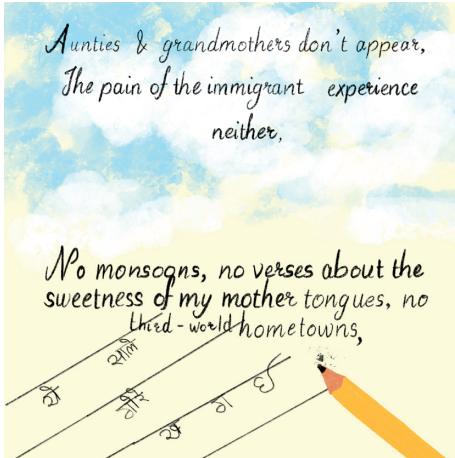 Aunties & grandmothers don't appear,
The pain of the immigrant experience
neither,
No monsoons, no verses about the
sweetness of my mother tongues, no
third-world hometowns,
ग